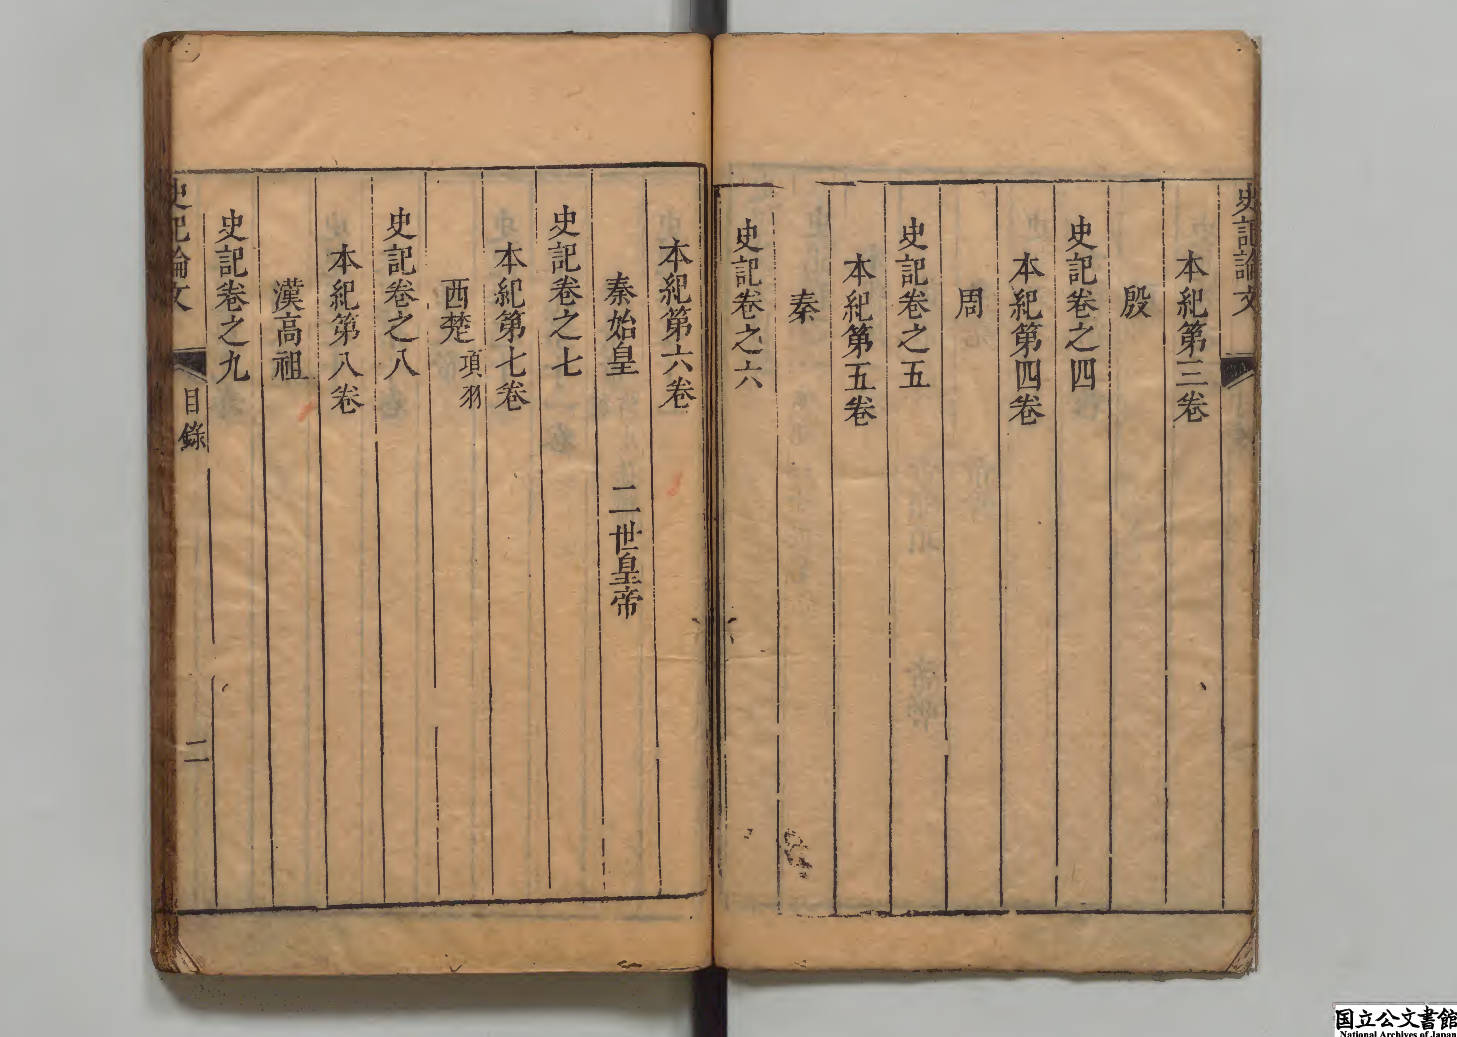 史記論文
本紀第三卷
殷
史記卷之四
本紀第四卷
周
史記卷之五
本紀第五卷
秦
史記卷之六
本紀第六卷
秦始皇 二世皇帝
史記卷之七
本紀第七卷
西楚項羽
史記卷之八
本紀第八卷
漢高祖
史記卷之九
史記論文 目錄 二
国立公文書館
National Archives of Japan